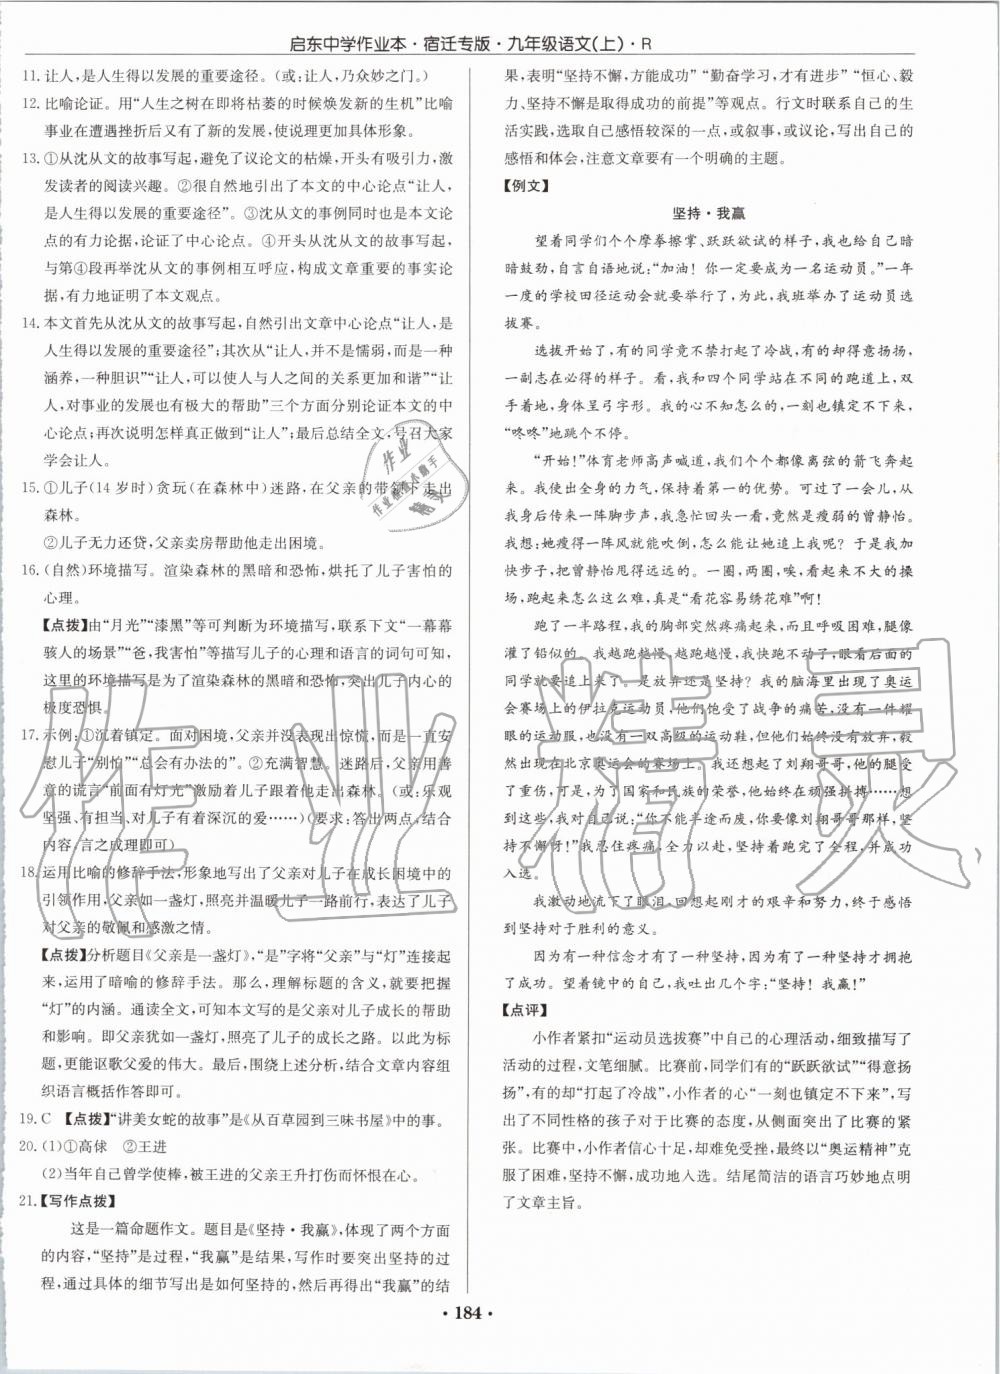 启东中学作业本·宿迁专版·九年级语文(上)·R
11. 让人，是人生得以发展的重要途径。(或：让人，乃众妙之门。)
12. 比喻论证。用“人生之树在即将枯萎的时候焕发新的生机”比喻
事业在遭遇挫折后又有了新的发展，使说理更加具体形象。
13. ①从沈从文的故事写起，避免了议论文的枯燥，开头有吸引力，激
发读者的阅读兴趣。②很自然地引出了本文的中心论点“让人，
是人生得以发展的重要途径”。③沈从文的事例同时也是本文论
点的有力论据，论证了中心论点。④开头从沈从文的故事写起，
与第④段再举沈从文的事例相互呼应，构成文章重要的事实论
据，有力地证明了本文观点。
14. 本文首先从沈从文的故事写起，自然引出文章中心论点“让人，是
人生得以发展的重要途径”；其次从“让人，并不是懦弱，而是一种
涵养，一种胆识”“让人，可以使人与人之间的关系更加和谐”“让
人，对事业的发展也有极大的帮助”三个方面分别论证本文的中
心论点；再次说明怎样真正做到“让人”；最后总结全文，号召大家
学会让人。
15. ①儿子(14岁时)贪玩(在森林中)迷路，在父亲的带领下走出
森林。
②儿子无力还贷，父亲卖房帮助他走出困境。
16. (自然)环境描写。渲染森林的黑暗和恐怖，烘托了儿子害怕的
心理。
【点拨】由“月光”“漆黑”等可判断为环境描写，联系下文“一幕幕
骇人的场景”“爸，我害怕”等描写儿子的心理和语言的词句可知，
这里的环境描写是为了渲染森林的黑暗和恐怖，突出儿子内心的
极度恐惧。
17. 示例：①沉着镇定。面对困境，父亲并没表现出惊慌，而是一直安
慰儿子“别怕”“总会有办法的”。②充满智慧。迷路后，父亲用善
意的谎言“前面有灯光”激励着儿子跟着他走出森林。(或：乐观
坚强、有担当、对儿子有着深沉的爱……)(要求：答出两点，结合
内容，言之成理即可)
18. 运用比喻的修辞手法，形象地写出了父亲对儿子在成长困境中的
引领作用，父亲如一盏灯，照亮并温暖儿子一路前行，表达了儿子
对父亲的敬佩和感激之情。
【点拨】分析题目《父亲是一盏灯》，“是”字将“父亲”与“灯”连接起
来，运用了暗喻的修辞手法。那么，理解标题的含义，就要把握
“灯”的内涵。通读全文，可知本文写的是父亲对儿子成长的帮助
和影响。即父亲犹如一盏灯，照亮了儿子的成长之路。以此为标
题，更能讴歌父爱的伟大。最后，围绕上述分析，结合文章内容组
织语言概括作答即可。
19. C 【点拨】“讲美女蛇的故事”是《从百草园到三味书屋》中的事。
20. (1)①高俅 ②王进
(2)当年自己曾学使棒，被王进的父亲王升打伤而怀恨在心。
21. 【写作点拨】
这是一篇命题作文。题目是《坚持·我赢》，体现了两个方面
的内容，“坚持”是过程，“我赢”是结果，写作时要突出坚持的过
程，通过具体的细节写出是如何坚持的，然后再得出“我赢”的结
果，表明“坚持不懈，方能成功”“勤奋学习，才有进步”“恒心、毅
力、坚持不懈是取得成功的前提”等观点。行文时联系自己的生
活实践，选取自己感悟较深的一点，或叙事，或议论，写出自己的
感悟和体会，注意文章要有一个明确的主题。
【例文】
坚持·我赢
望着同学们个个摩拳擦掌、跃跃欲试的样子，我也给自己暗
暗鼓劲，自言自语地说：“加油！你一定要成为一名运动员。”一年
一度的学校田径运动会就要举行了，为此，我班举办了运动员选
拔赛。
选拔开始了，有的同学竟不禁打起了冷战，有的却得意扬扬，
一副志在必得的样子。看，我和四个同学站在不同的跑道上，双
手着地，身体呈弓字形。我的心不知怎么的，一刻也镇定不下来，
“咚咚”地跳个不停。
“开始！”体育老师高声喊道，我们个个都像离弦的箭飞奔起
来。我使出全身的力气，保持着第一的优势。可过了一会儿，从
我身后传来一阵脚步声，我急忙回头一看，竟然是瘦弱的曾静怡。
我想：她瘦得一阵风就能吹倒，怎么能让她追上我呢？于是我加
快步子，把曾静怡甩得远远的。一圈，两圈，唉，看起来不大的操
场，跑起来怎么这么难，真是“看花容易绣花难”啊！
跑了一半路程，我的胸部突然疼痛起来，而且呼吸困难，腿像
灌了铅似的。我越跑越慢，越跑越慢，我快跑不动了，眼看后面的
同学就要追上来了。是放弃还是坚持？我的脑海里出现了奥运
会赛场上的伊拉克运动员，他们饱受了战争的痛苦，没有一件耀
眼的运动服，也没有一双高级的运动鞋，但他们始终没有放弃，毅
然出现在北京奥运会的赛场上。我又想起了刘翔哥哥，他的腿受
了重伤，可是，为了国家和民族的荣誉，他始终在顽强拼搏……想
到这些，我对自己说：“你不能半途而废，你要像刘翔哥哥那样，坚
持不懈呀！”我忍住疼痛，全力以赴，坚持着跑完了全程，并成功
入选。
我激动地流下了眼泪。回想起刚才的艰辛和努力，终于感悟
到坚持对于胜利的意义。
因为有一种信念才有了一种坚持，因为有了一种坚持才拥抱
了成功。望着镜中的自己，我吐出几个字：“坚持！我赢！”
【点评】
小作者紧扣“运动员选拔赛”中自己的心理活动，细致描写了
活动的过程，文笔细腻。比赛前，同学们有的“跃跃欲试”“得意扬
扬”，有的“打起了冷战”，小作者的心“一刻也镇定不下来”，写出
了不同性格的孩子对于比赛的态度，从侧面突出了比赛的紧
张。比赛中，小作者信心十足，却难免受挫，最终以“奥运精神”克
服了困难，坚持不懈，成功地入选。结尾简洁的语言巧妙地点明
了文章主旨。
·184·
作业精灵
作业
作业检查小助手
精灵